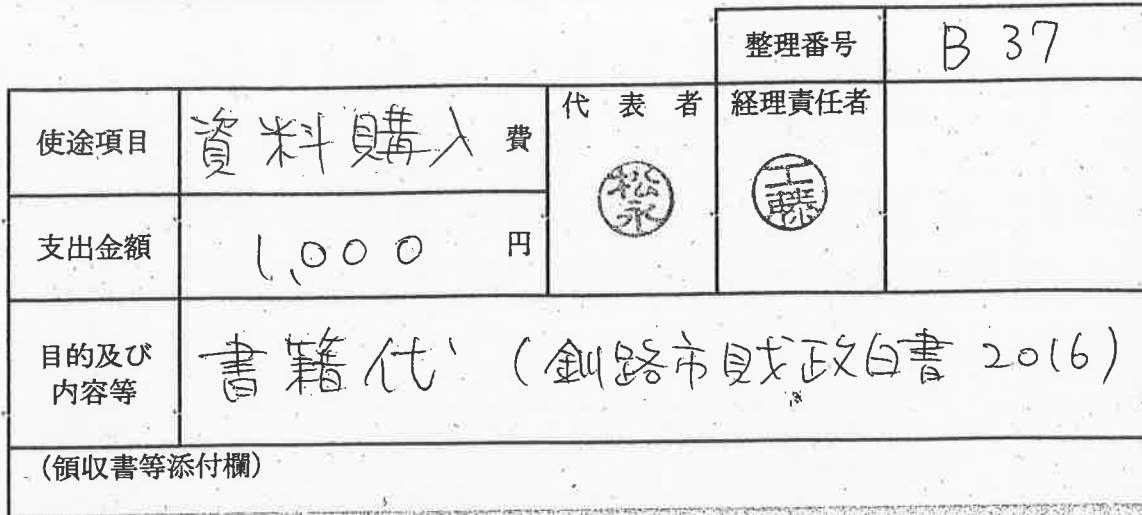 整理番号 B 37
使途項目 資料購入 費
代表者 経理責任者
松永 工藤
支出金額 1,000 円
目的及び
内容等
書籍代 (釧路市財政白書 2016)
(領収書等添付欄)